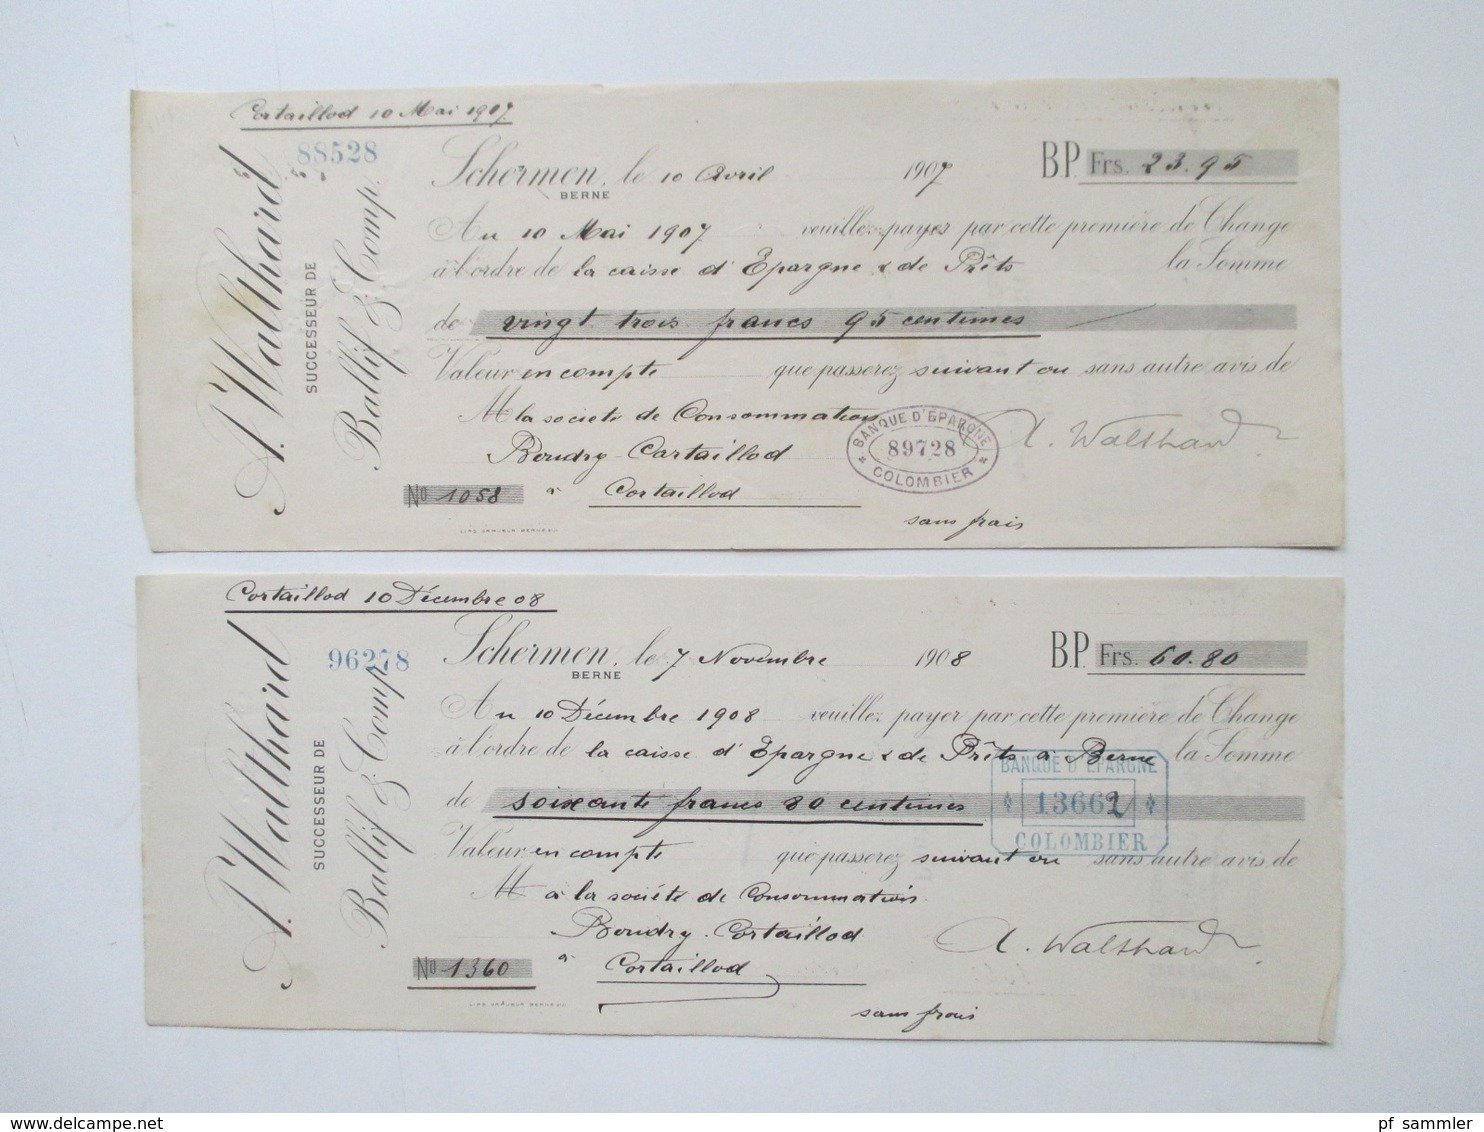 Cortaillod 10 Mai 1907
88528
A. Walthard
SUCCESSEUR DE
Ballif & Comp.
Schermen, le 10 Avril 1907 B.P. Frs. 23.95
BERNE
Au 10 Mai 1907 veuillez payer par cette première de Change
à l'ordre de la caisse d'Epargne & de Prêts la Somme
de vingt trois francs 95 centimes
Valeur en compte que passerez suivant ou sans autre avis de
M la societé de Consommation
Boudry-Cortaillod
BANQUE D'EPARGNE
89728
COLOMBIER
A. Walthard
No 1058 à Cortaillod
sans frais
Cortaillod 10 Décembre 08
96278
A. Walthard
SUCCESSEUR DE
Ballif & Comp.
Schermen, le 7 Novembre 1908 B.P. Frs. 60.80
BERNE
Au 10 Décembre 1908 veuillez payer par cette première de Change
à l'ordre de la caisse d'Epargne & de Prêts à Berne la Somme
BANQUE D'EPARGNE
de soixante francs 80 centimes
13662
COLOMBIER
Valeur en compte que passerez suivant ou sans autre avis de
M à la société de Consommation
Boudry-Cortaillod
A. Walthard
No 1360 à Cortaillod
sans frais
delcampe.net
pf_sammler